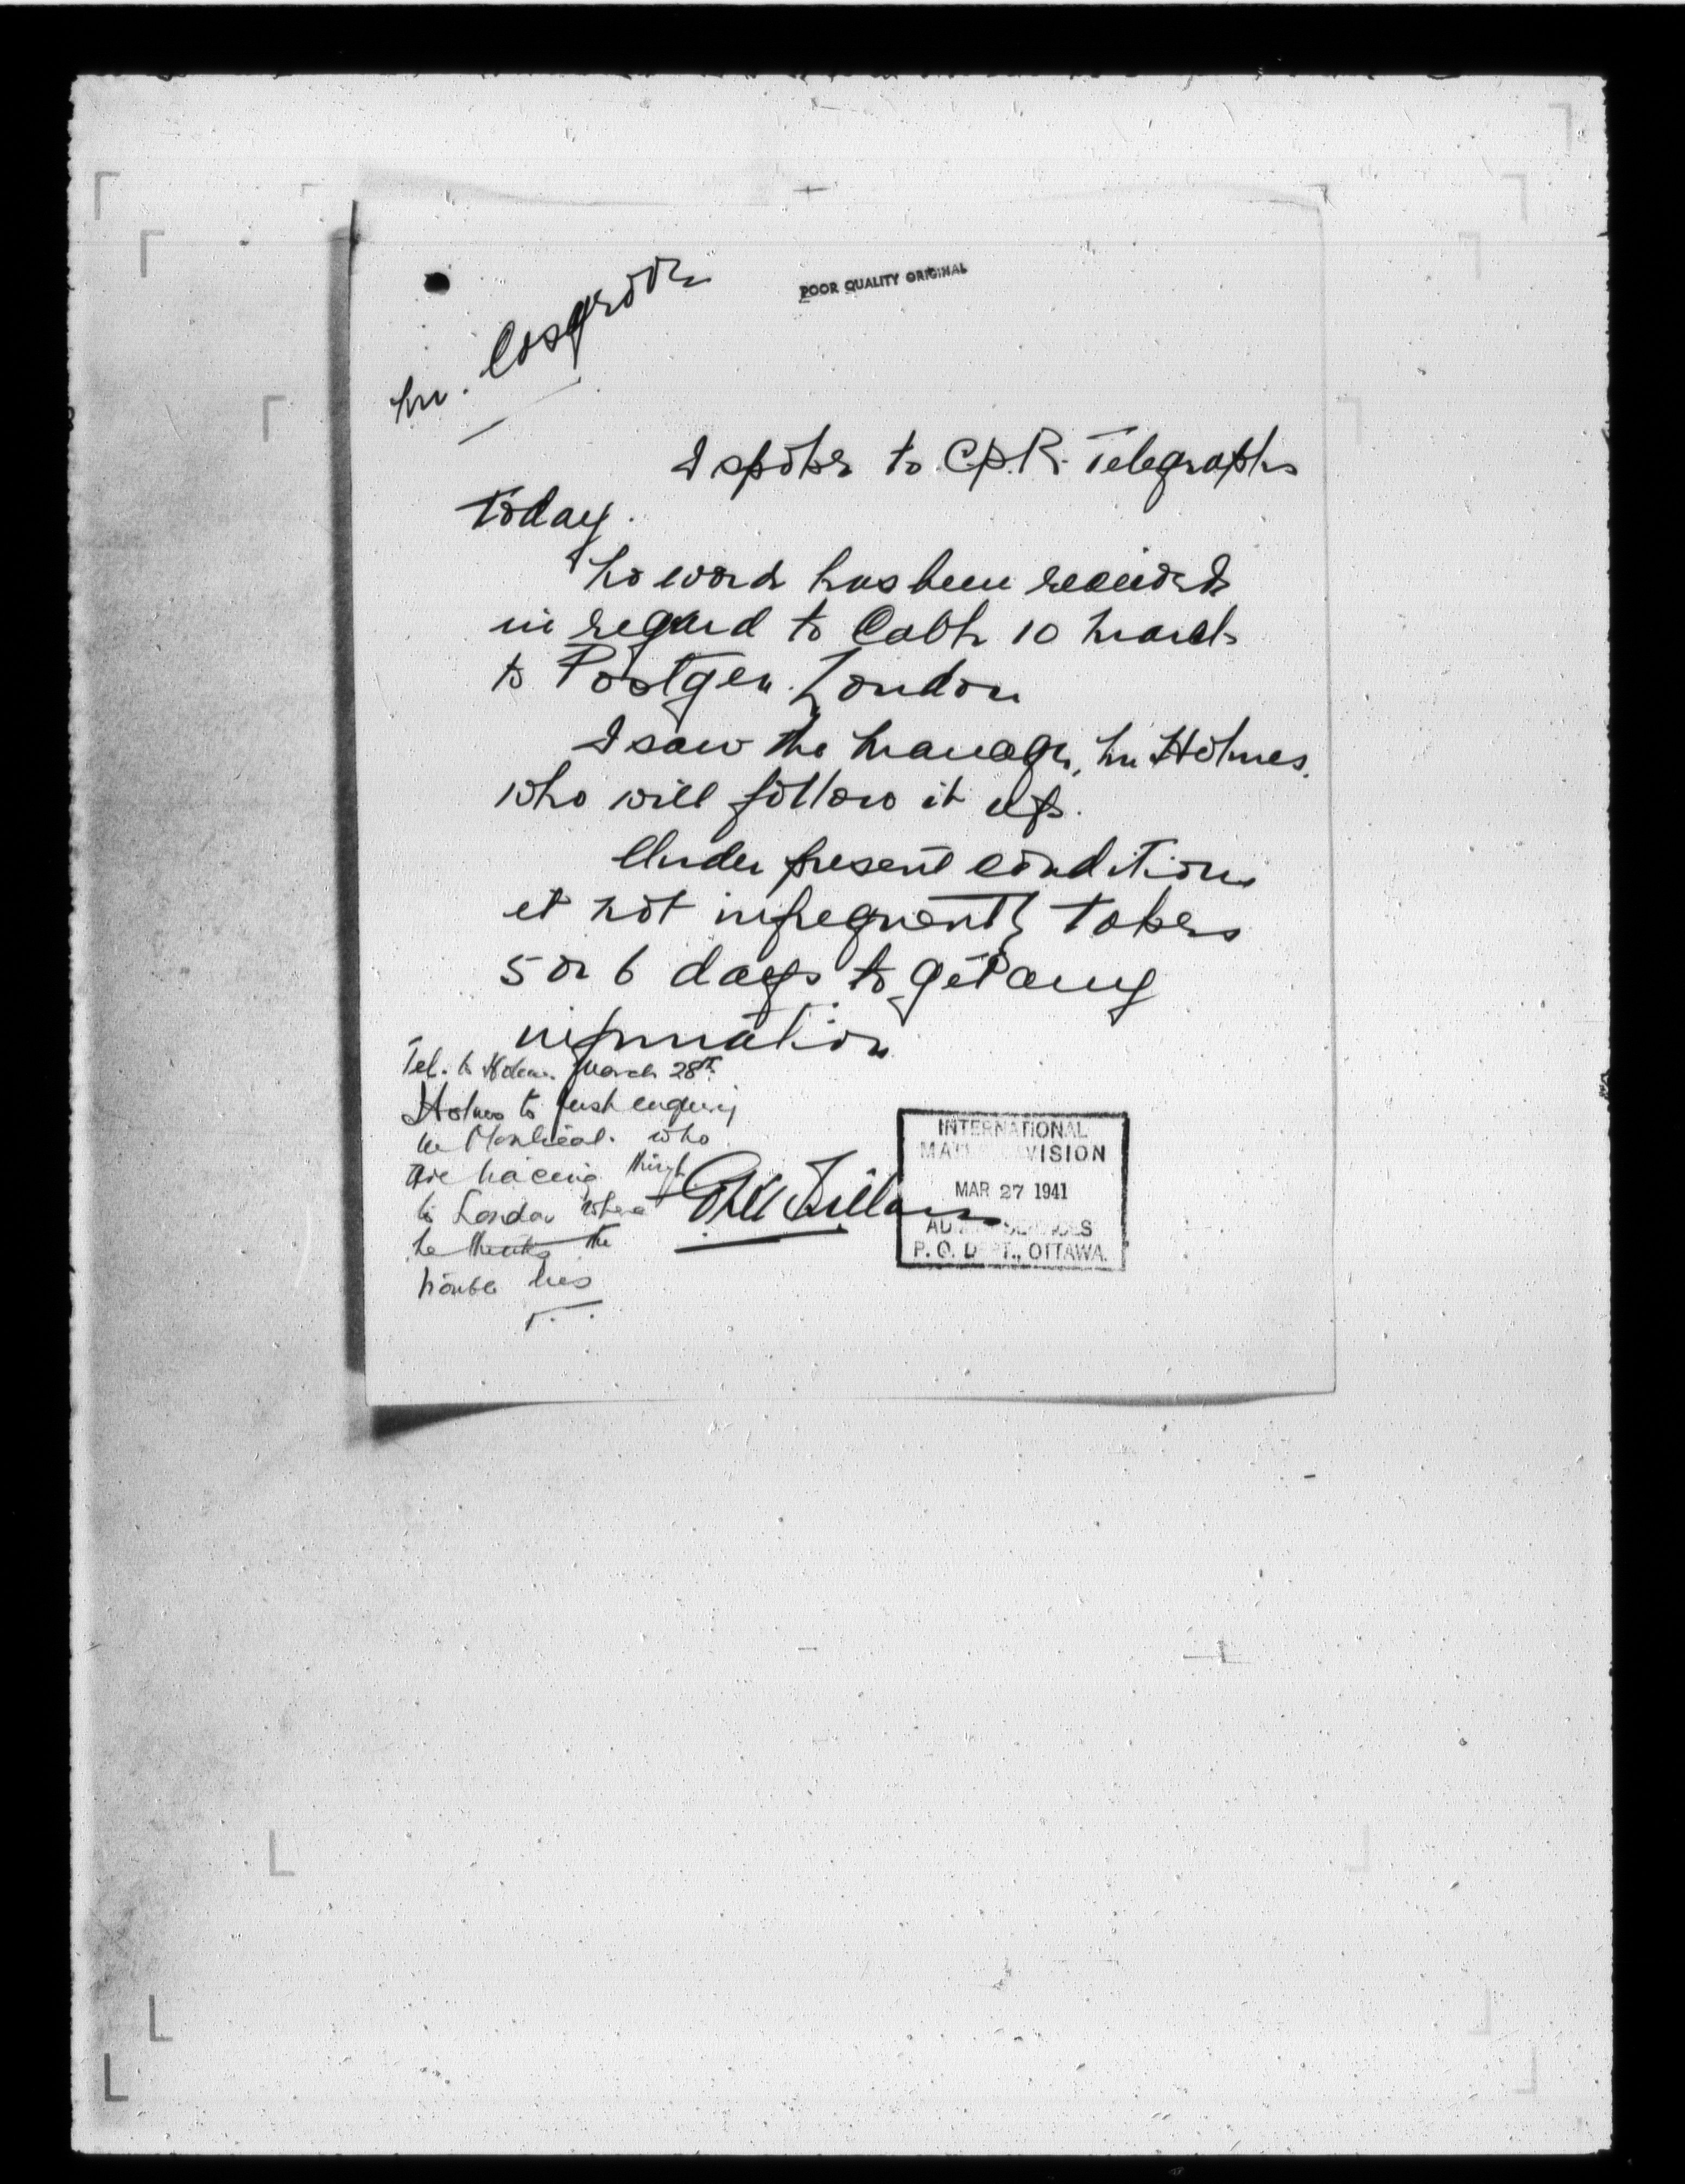 POOR QUALITY ORIGINAL
Mr. Cosgrove
I spoke to C.P.R. Telegraphs
Today.
No word has been received
in regard to Cable 10 March
to Postgen. London
I saw the Manager, Mr Holmes,
who will follow it up.
Under present conditions
it not infrequently takes
5 or 6 days to get any
information
Tel. to Holmes March 28th.
Holmes to push enquiry
in Montreal. who
are tracing through
to London where
he thinks the
trouble lies
INTERNATIONAL
VISION
MAR 27 1941
P. O. DEPT., OTTAWA.